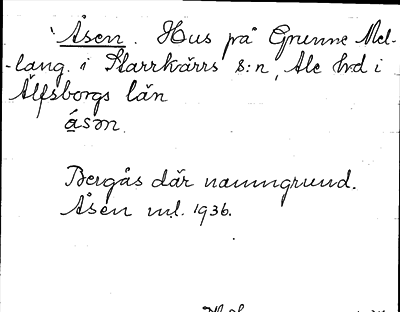 Åsen. Hus på Grunne Mel-
-lang. i Starrkärrs s:n, Ale hd i
Älfsborgs län
åsən.
Bergås där namngrund.
Åsen ml. 1936.